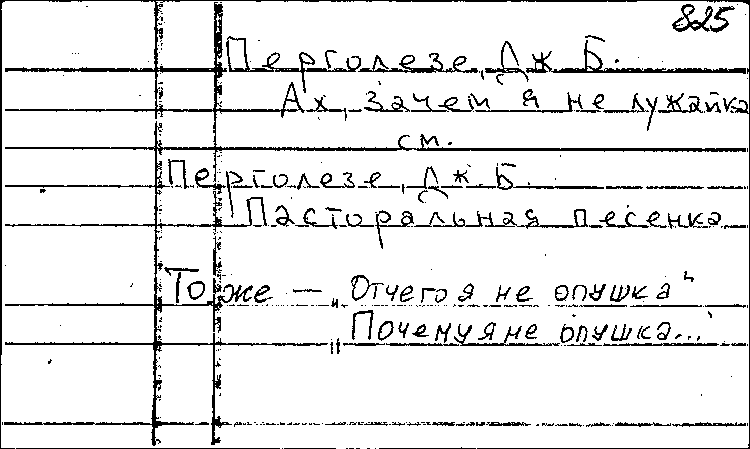 825
Перголезе, Дж. Б.
Ах, зачем я не лужайка
см.
Перголезе, Дж. Б.
Пасторальная песенка
То же — „Отчего я не опушка"
„Почему я не опушка..."